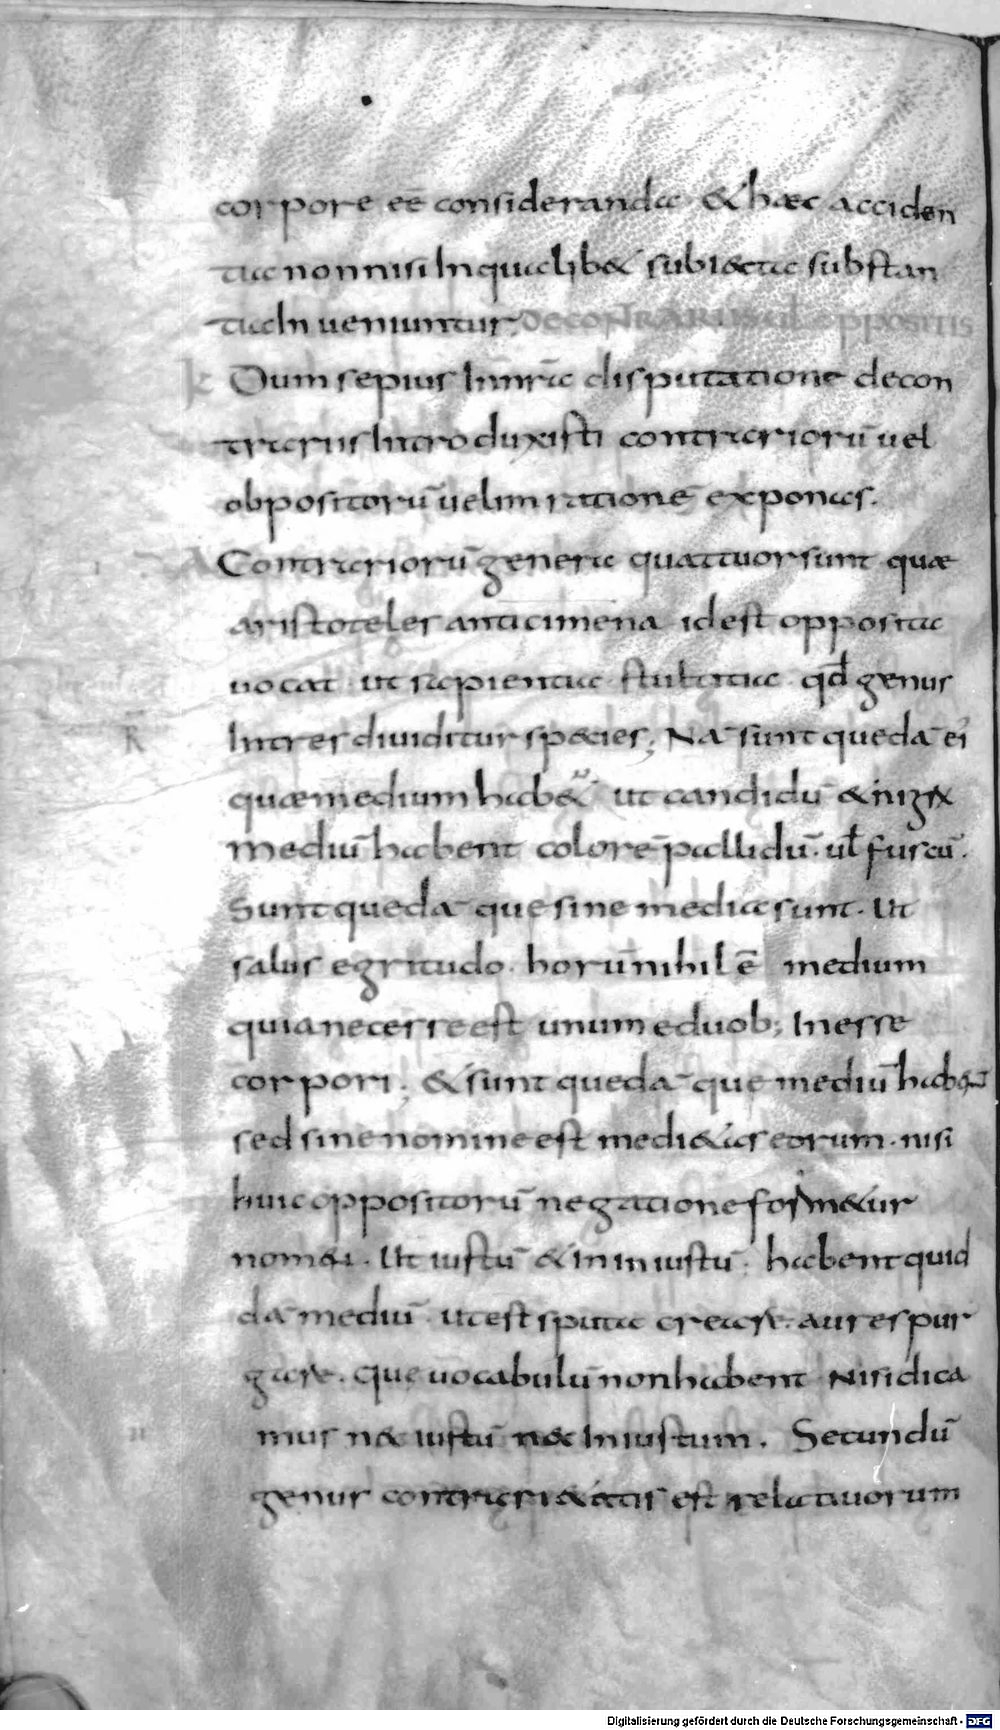 corpore eē consideranda & haec acciden
tia non nisi In qualib& subi&ta substan
tia In ueniuntur. DE CONTRARIIS uł oppositis
k Dum sepius In nr̄a disputatione de con
trariis Introduxisti contrariorū uel
obpositorū uelim rationē exponas.
I A Contrariorū genera quattuor sunt quae
aristoteles anticimena id est opposita
uocat ut sapientia stultitia qđ genus
In tres diuiditur sp&cies; Nā sunt quedā ei'
quae medium hab& ut candidū & nigrū
mediū habent colorē pallidū. uł fuscū.
Sunt quedā que sine media sunt. Ut
salus egritudo. horū nihil ē medium
quia necesse est unum e duob; Inesse
corpori; & sunt quedā que mediū habent
sed sine nomine est medi&as eorum. nisi
huic oppositorū negatione form&ur
nomen. Ut iustū & in iniustū. habent quid
dā mediū ut est sputa creare. aures pur
gare. que uocabulū non habent Nisi dica
II mus n& iustū n& Iniustum. Secundū
genus contrari&atis est relatiuorum
Digitalisierung gefördert durch die Deutsche Forschungsgemeinschaft - DFG